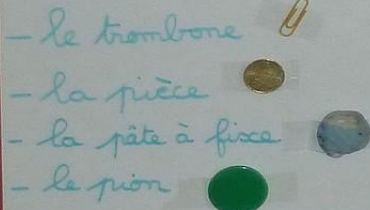 - le trombone
- la pièce
- la pâte à fixe
- le pion